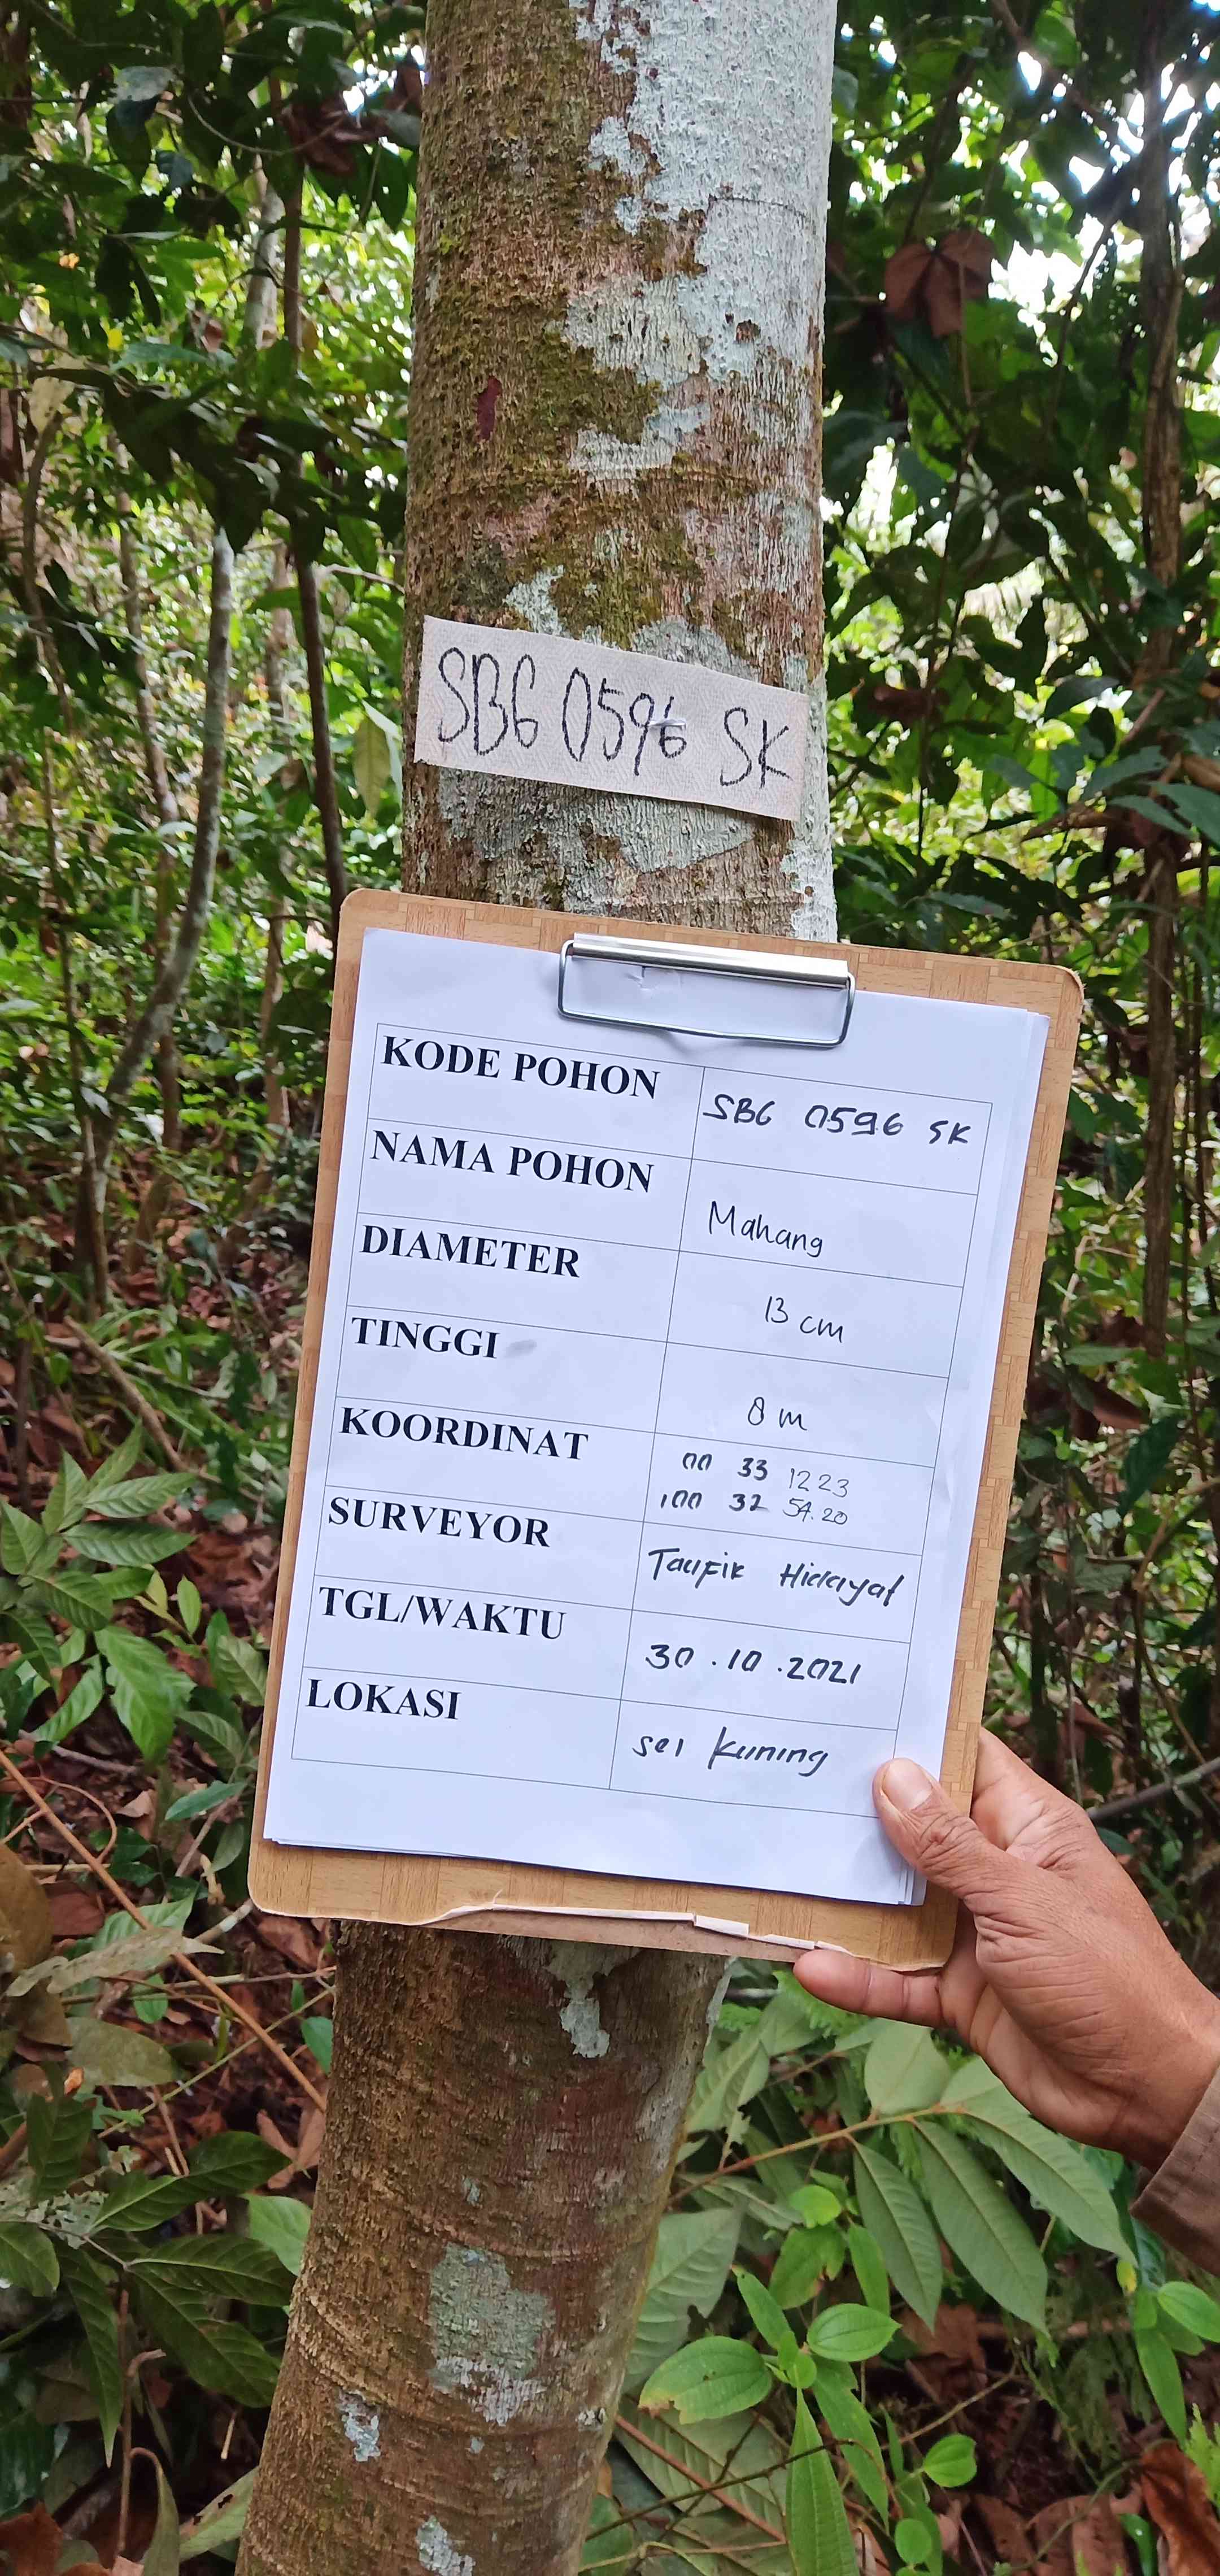 SBG 0596 SK
KODE POHON SBG 0596 SK
NAMA POHON Mahang
DIAMETER 13 cm
TINGGI 8 m
KOORDINAT 00 33 12 23
100 32 54.20
SURVEYOR Taufik Hidayat
TGL/WAKTU 30.10.2021
LOKASI sei kuning